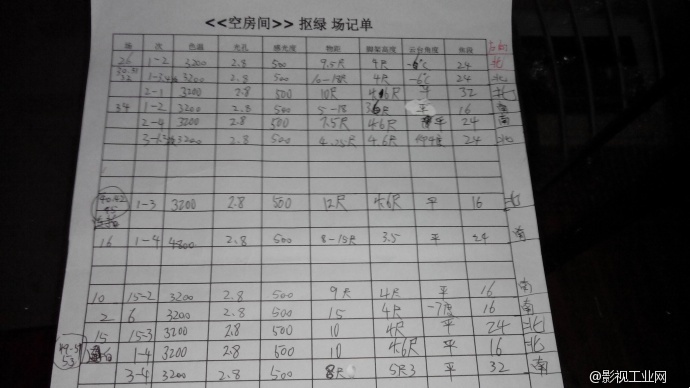 <<空房间>> 抠绿 场记单
场 次 色温 光孔 感光度 物距 脚架高度 云台角度 焦段
26 1-2 3200 2.8 500 9.5尺 4尺 -6℃ 24 北
3200 2.8 500 10-18尺 4尺 -6℃ 24 北
2-1 3200 2.8 500 10尺 平 32 北
34 1-2 3200 2.8 500 5-18 平 16
2-4 3200 2.8 500 7.5尺 4.6尺 平 24 南
3200 2.8 500 4.25尺 4.6尺 24 北
1-3 3200 2.8 500 12尺 4.6尺 平 16 北
16 1-4 4800 2.8 500 8-15尺 3.5 平 24 南
10 15-2 3200 2.8 500 9尺 4尺 平 16 南
2 6 3200 2.8 500 15 4尺 -7度 16 南
15 15-3 3200 2.8 500 10 4尺 平 24 北
1-4 3200 2.8 500 10 4.6尺 平 16 北
3-4 3200 2.8 500 8尺 5尺3 平 32 南
@影视工业网